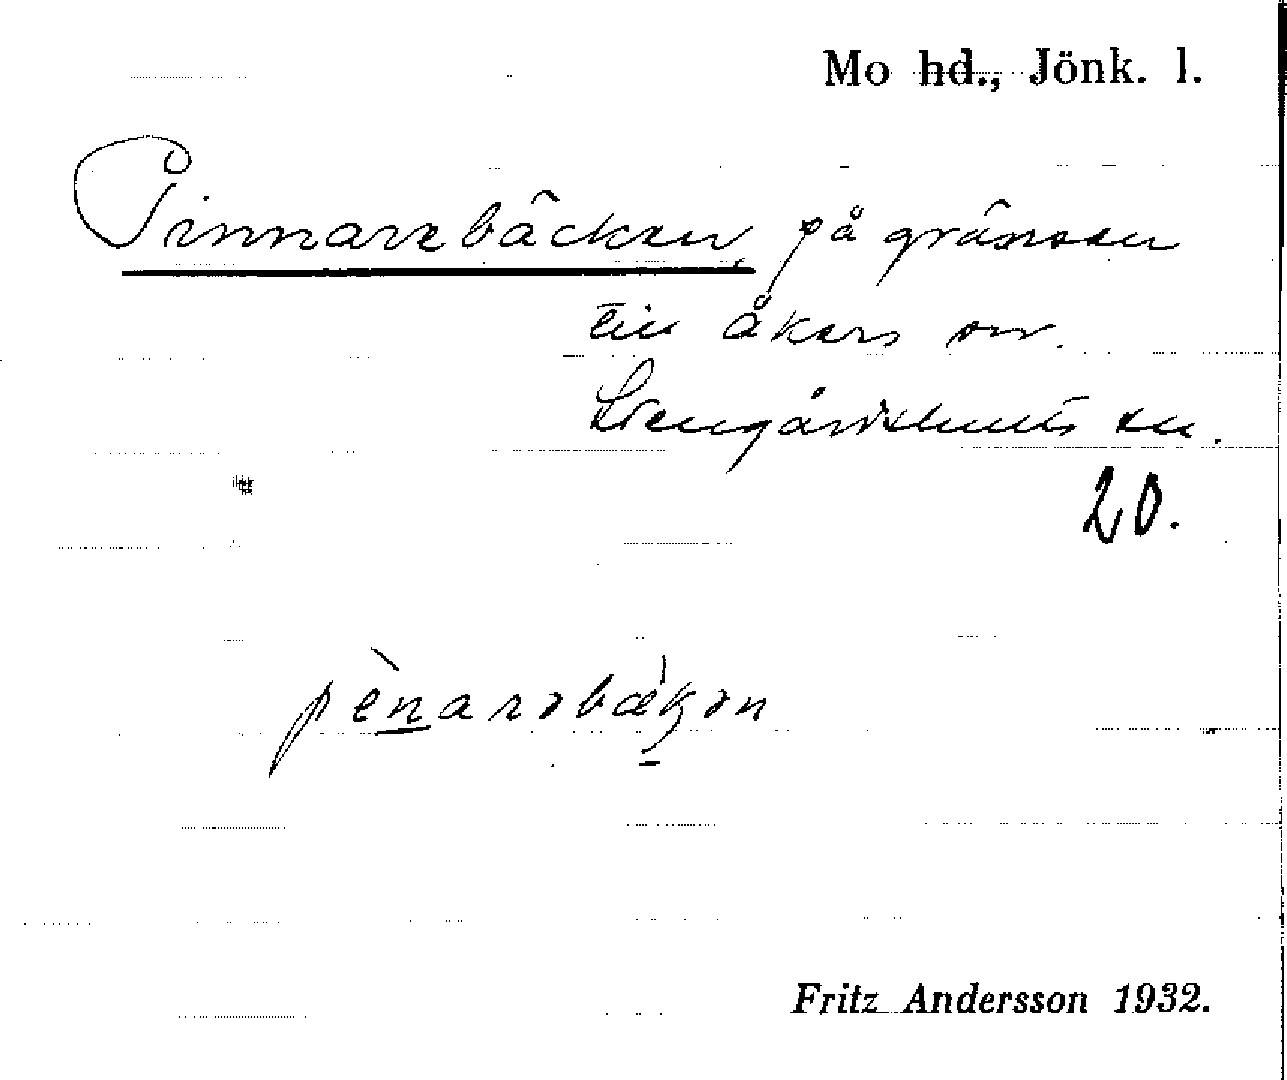 Mo hd., Jönk. l.
Pinnarebäcken, på gränsen
till Åkers sn.
Stengårdshults sn.
20.
pènarəbækən
Fritz Andersson 1932.